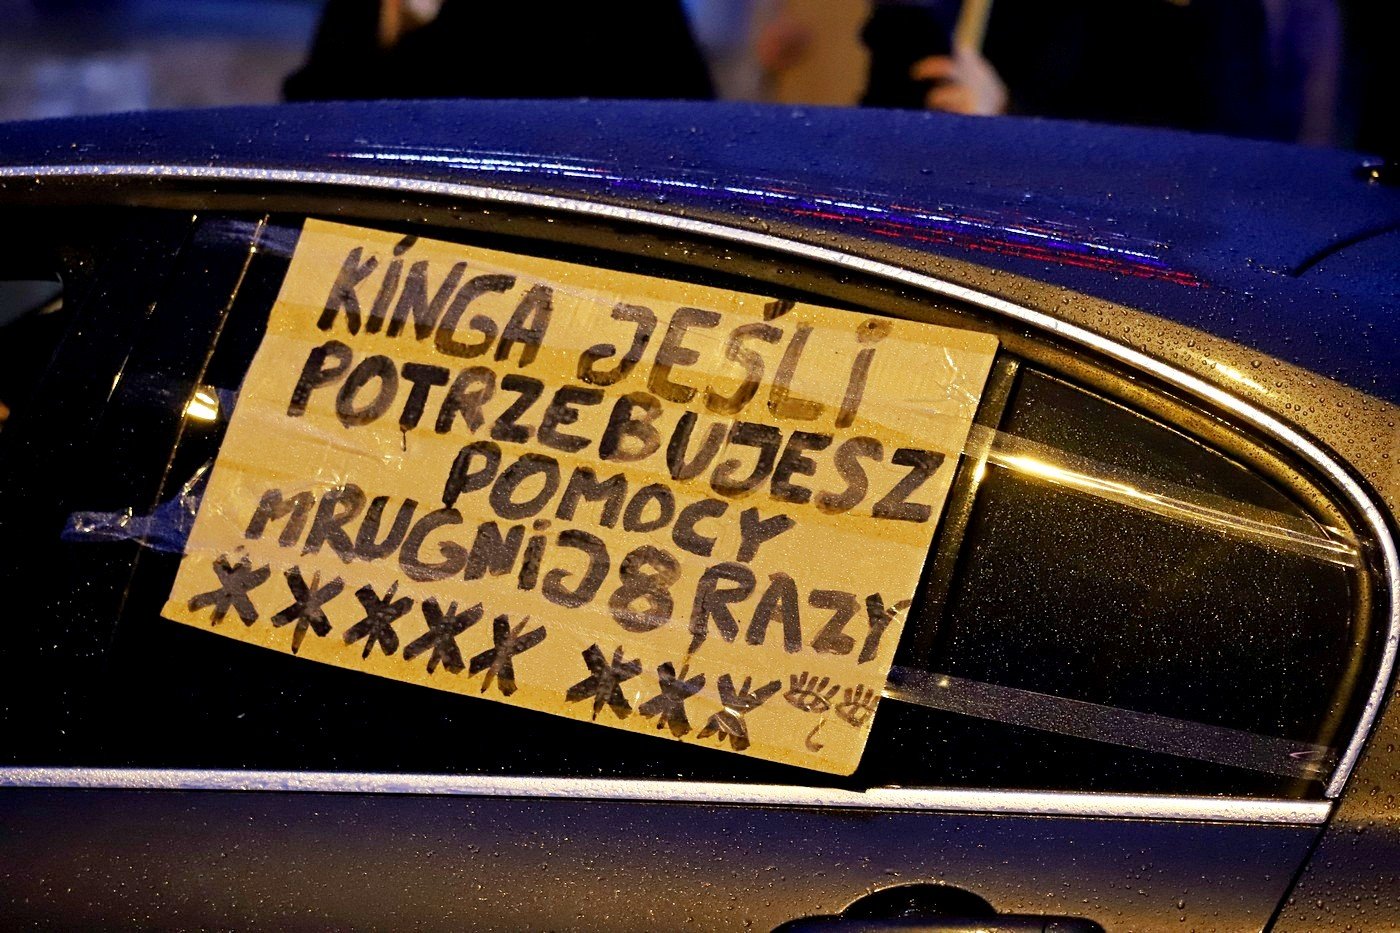 KINGA JEŚLI
POTRZEBUJESZ
POMOCY
MRUGNIJ 8 RAZY
***** ***